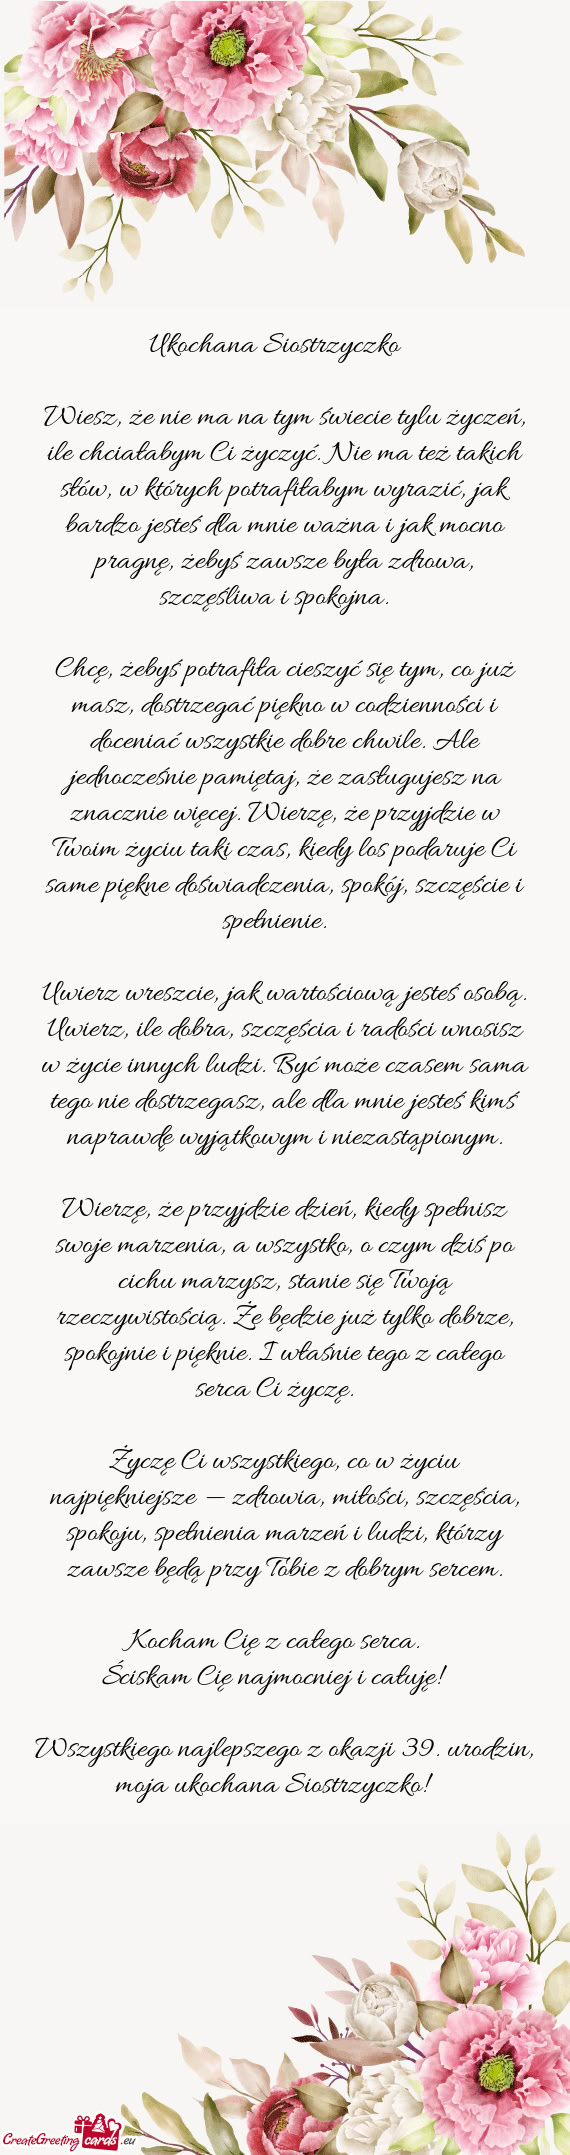 Ukochana Siostrzyczko
Wiesz, że nie ma na tym świecie tylu życzeń,
ile chciałabym Ci życzyć. Nie ma też takich
słów, w których potrafiłabym wyrazić, jak
bardzo jesteś dla mnie ważna i jak mocno
pragnę, żebyś zawsze była zdrowa,
szczęśliwa i spokojna.
Chcę, żebyś potrafiła cieszyć się tym, co już
masz, dostrzegać piękno w codzienności i
doceniać wszystkie dobre chwile. Ale
jednocześnie pamiętaj, że zasługujesz na
znacznie więcej. Wierzę, że przyjdzie w
Twoim życiu taki czas, kiedy los podaruje Ci
same piękne doświadczenia, spokój, szczęście i
spełnienie.
Uwierz wreszcie, jak wartościową jesteś osobą.
Uwierz, ile dobra, szczęścia i radości wnosisz
w życie innych ludzi. Być może czasem sama
tego nie dostrzegasz, ale dla mnie jesteś kimś
naprawdę wyjątkowym i niezastąpionym.
Wierzę, że przyjdzie dzień, kiedy spełnisz
swoje marzenia, a wszystko, o czym dziś po
cichu marzysz, stanie się Twoją
rzeczywistością. Że będzie już tylko dobrze,
spokojnie i pięknie. I właśnie tego z całego
serca Ci życzę.
Życzę Ci wszystkiego, co w życiu
najpiękniejsze – zdrowia, miłości, szczęścia,
spokoju, spełnienia marzeń i ludzi, którzy
zawsze będą przy Tobie z dobrym sercem.
Kocham Cię z całego serca.
Ściskam Cię najmocniej i całuję!
Wszystkiego najlepszego z okazji 39. urodzin,
moja ukochana Siostrzyczko!
CreateGreeting cards .eu